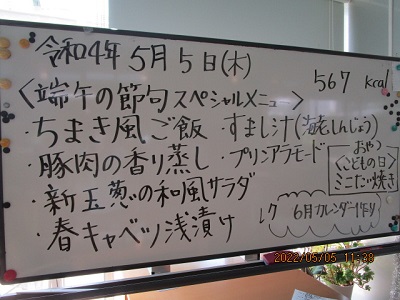 令和4年5月5日(木)
567 kcal
〈端午の節句スペシャルメニュー〉
・ちまき風ご飯 ・すまし汁(海老しんじょう)
・豚肉の香り蒸し ・プリンアラモード
・新玉葱の和風サラダ
・春キャベツ浅漬け
おやつ
〈こどもの日〉
ミニたい焼き
レク 6月カレンダー作り
2022/05/05 11:38